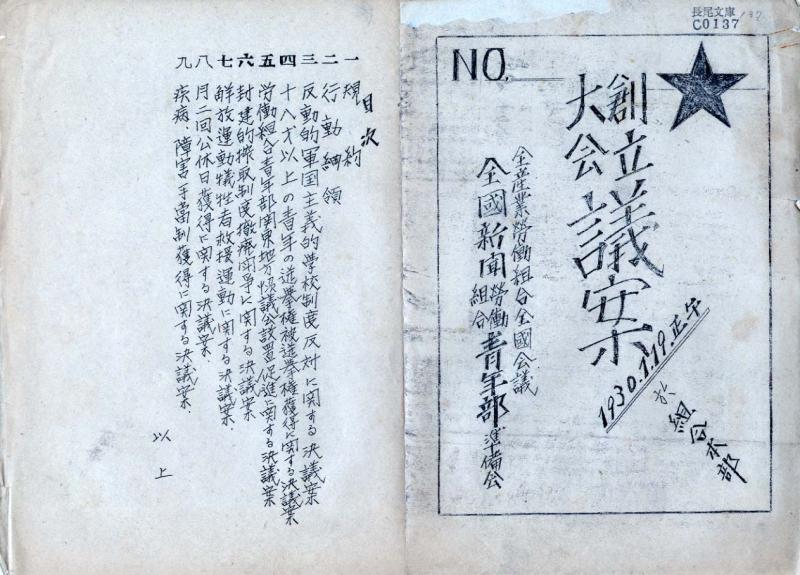 長尾文庫
C0137
NO.
創立
大会
議案
1930.1.19.正午
於 組合本部
全産業労働組合全國会議
全國新聞労働組合青年部準備会
目次
一 規約
二 行動綱領
三 反動的軍国主義的学校制度反対に関する決議案
四 十八才以上の青年の選挙権被選挙権獲得に関する決議案
五 労働組合青年部関東地方協議会設置促進に関する決議案
六 封建的搾取制度撤廃闘争に関する決議案
七 解放運動犠牲者救援運動に関する決議案
八 月二回公休日獲得に関する決議案
九 疾病、障害手當制獲得に関する決議案
以上